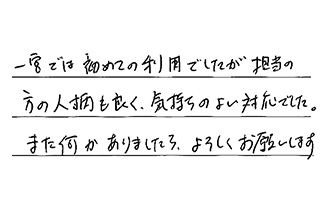 一宮では初めての利用でしたが担当の
方の人柄も良く、気持ちのよい対応でした。
また何かありましたら、よろしくお願いします